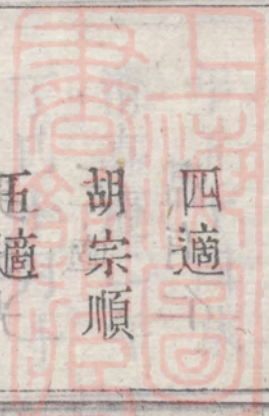 四適
胡宗順
五適